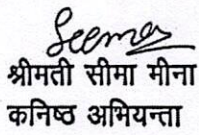 Seema
श्रीमती सीमा मीना
कनिष्ठ अभियन्ता